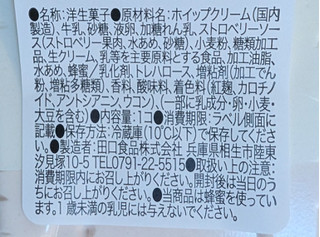 ●名称:洋生菓子●原材料名:ホイップクリーム(国内
製造)、牛乳、砂糖、液卵、加糖れん乳、ストロベリーソー
ス(ストロベリー果肉、水あめ、砂糖)、小麦粉、糖類加工
品、生クリーム、乳等を主要原料とする食品、加工油脂、
水あめ、蜂蜜/乳化剤、トレハロース、増粘剤(加工でん
粉、増粘多糖類)、香料、酸味料、着色料(紅麹、カロチノ
イド、アントシアニン、ウコン)、(一部に乳成分・卵・小麦・
大豆を含む)●内容量:1コ●消費期限:ラベル側面に
記載●保存方法:冷蔵庫(10℃以下)で保存してくださ
い。●製造者:田口食品株式会社 兵庫県相生市陸東
汐見塚10-5 TEL0791-22-5515●取扱い上の注意:
消費期限内にお召し上がりください。開封後は当日のう
ちにお召し上がりください。●当商品は蜂蜜を使ってい
ます。1歳未満の乳児には与えないでください。